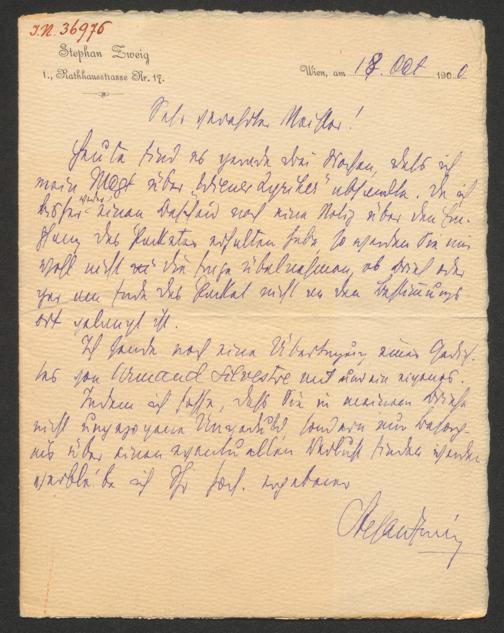 I.N. 36976
Stephan Zweig
1., Rathhausstrasse Nr. 17.
Wien, am 18. Oct 1900.
Sehr verehrter Meister!
Heute sind es gerade drei Wochen, dass ich
mein Msgt über "Wiener Lyriker" absandte. Da ich
bisher weder einen Bescheid noch eine Notiz über den Em-
pfang des Packetes erhalten habe so werden Sie mir
wohl nicht die Frage übelnehmen, ob Brief oder
gar am Ende das Packet nicht an den Bestimmungs
ort gelangt ist.
Ich sende noch eine Übertragung eines Gedich-
tes von Armand Silvestre mit und ein eigenes.
Indem ich hoffe, daß Sie in meinem Briefe
nicht ungezogene Ungeduld, sondern nur Besorg-
nis über einen eventuellen Verlust finden werden
verbleibe ich Ihr hoch. ergebener
Stefan Zweig